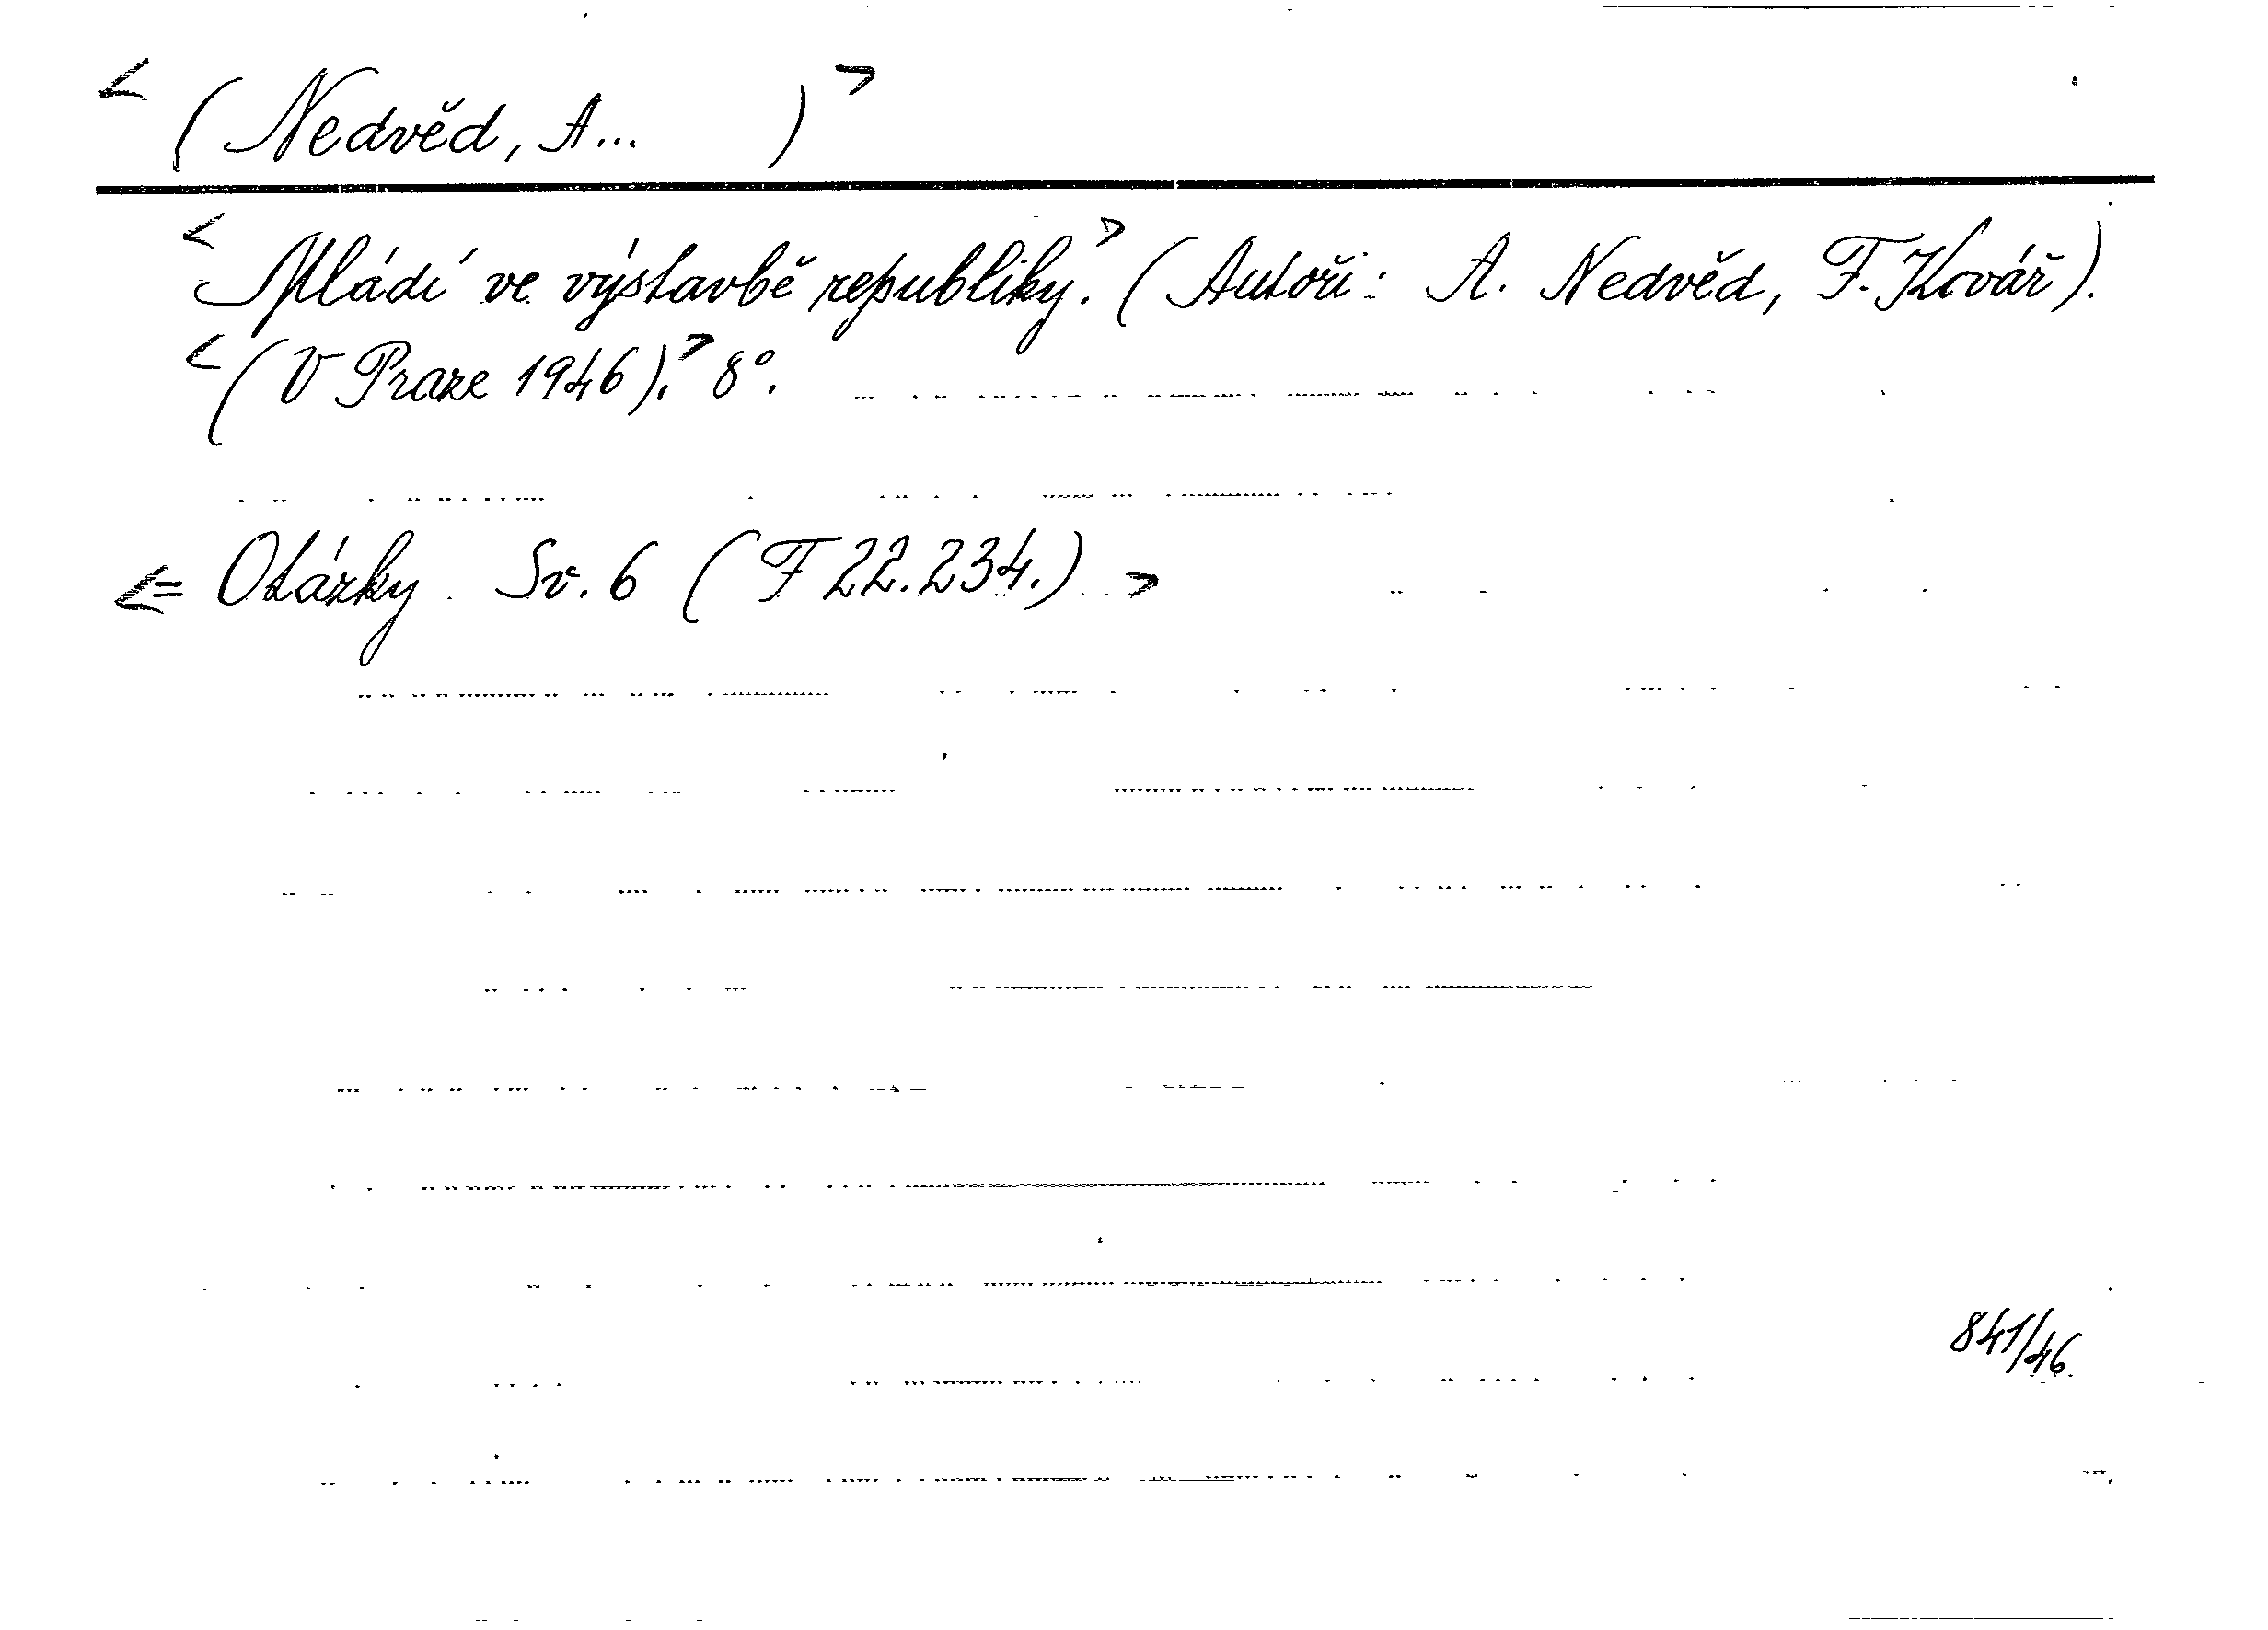 < (Nedvěd, A... ) >
< Mládí ve výstavbě republiky. > (Autoři: A. Nedvěd, F. Kovář).
< (V Praze 1946). > 8°.
<= Otázky. Sv. 6 (F 22.234.) >
841/46.